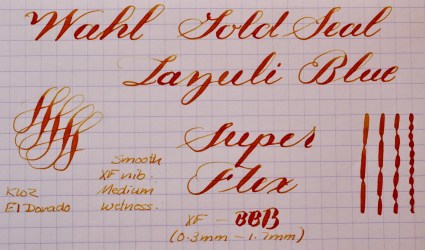 Wahl Gold Seal
Lazuli Blue
Super
Flex
Smooth
XF nib.
Medium
Wetness.
KWZ
El Dorado
XF - BBB
(0.3mm - 1.7mm)